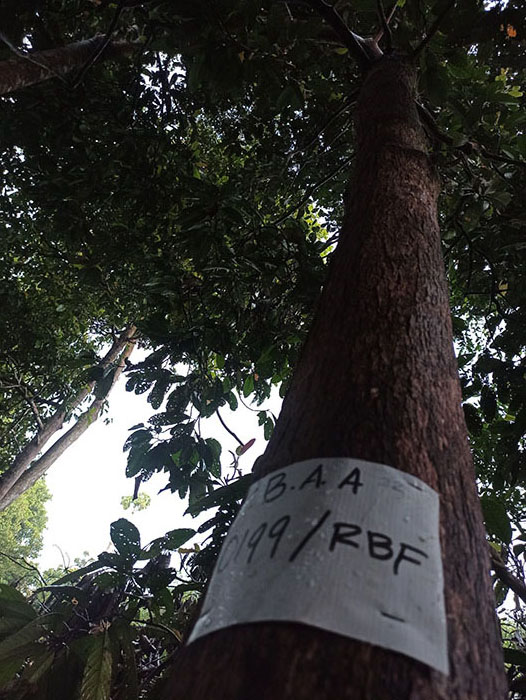 P.B.A.A
0199/RBF